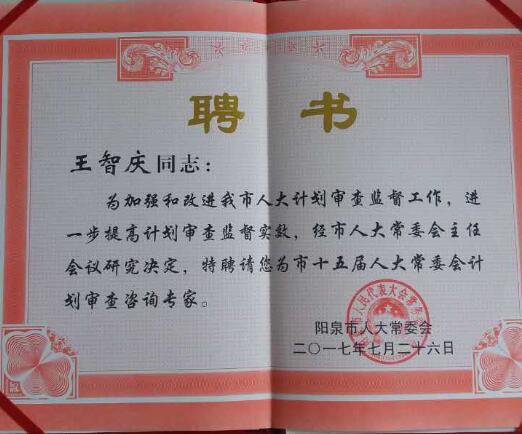 聘 书
王智庆同志：
为加强和改进我市人大计划审查监督工作，进
一步提高计划审查监督实效，经市人大常委会主任
会议研究决定，特聘请您为市十五届人大常委会计
划审查咨询专家。
阳泉市人大常委会
二〇一七年七月二十六日